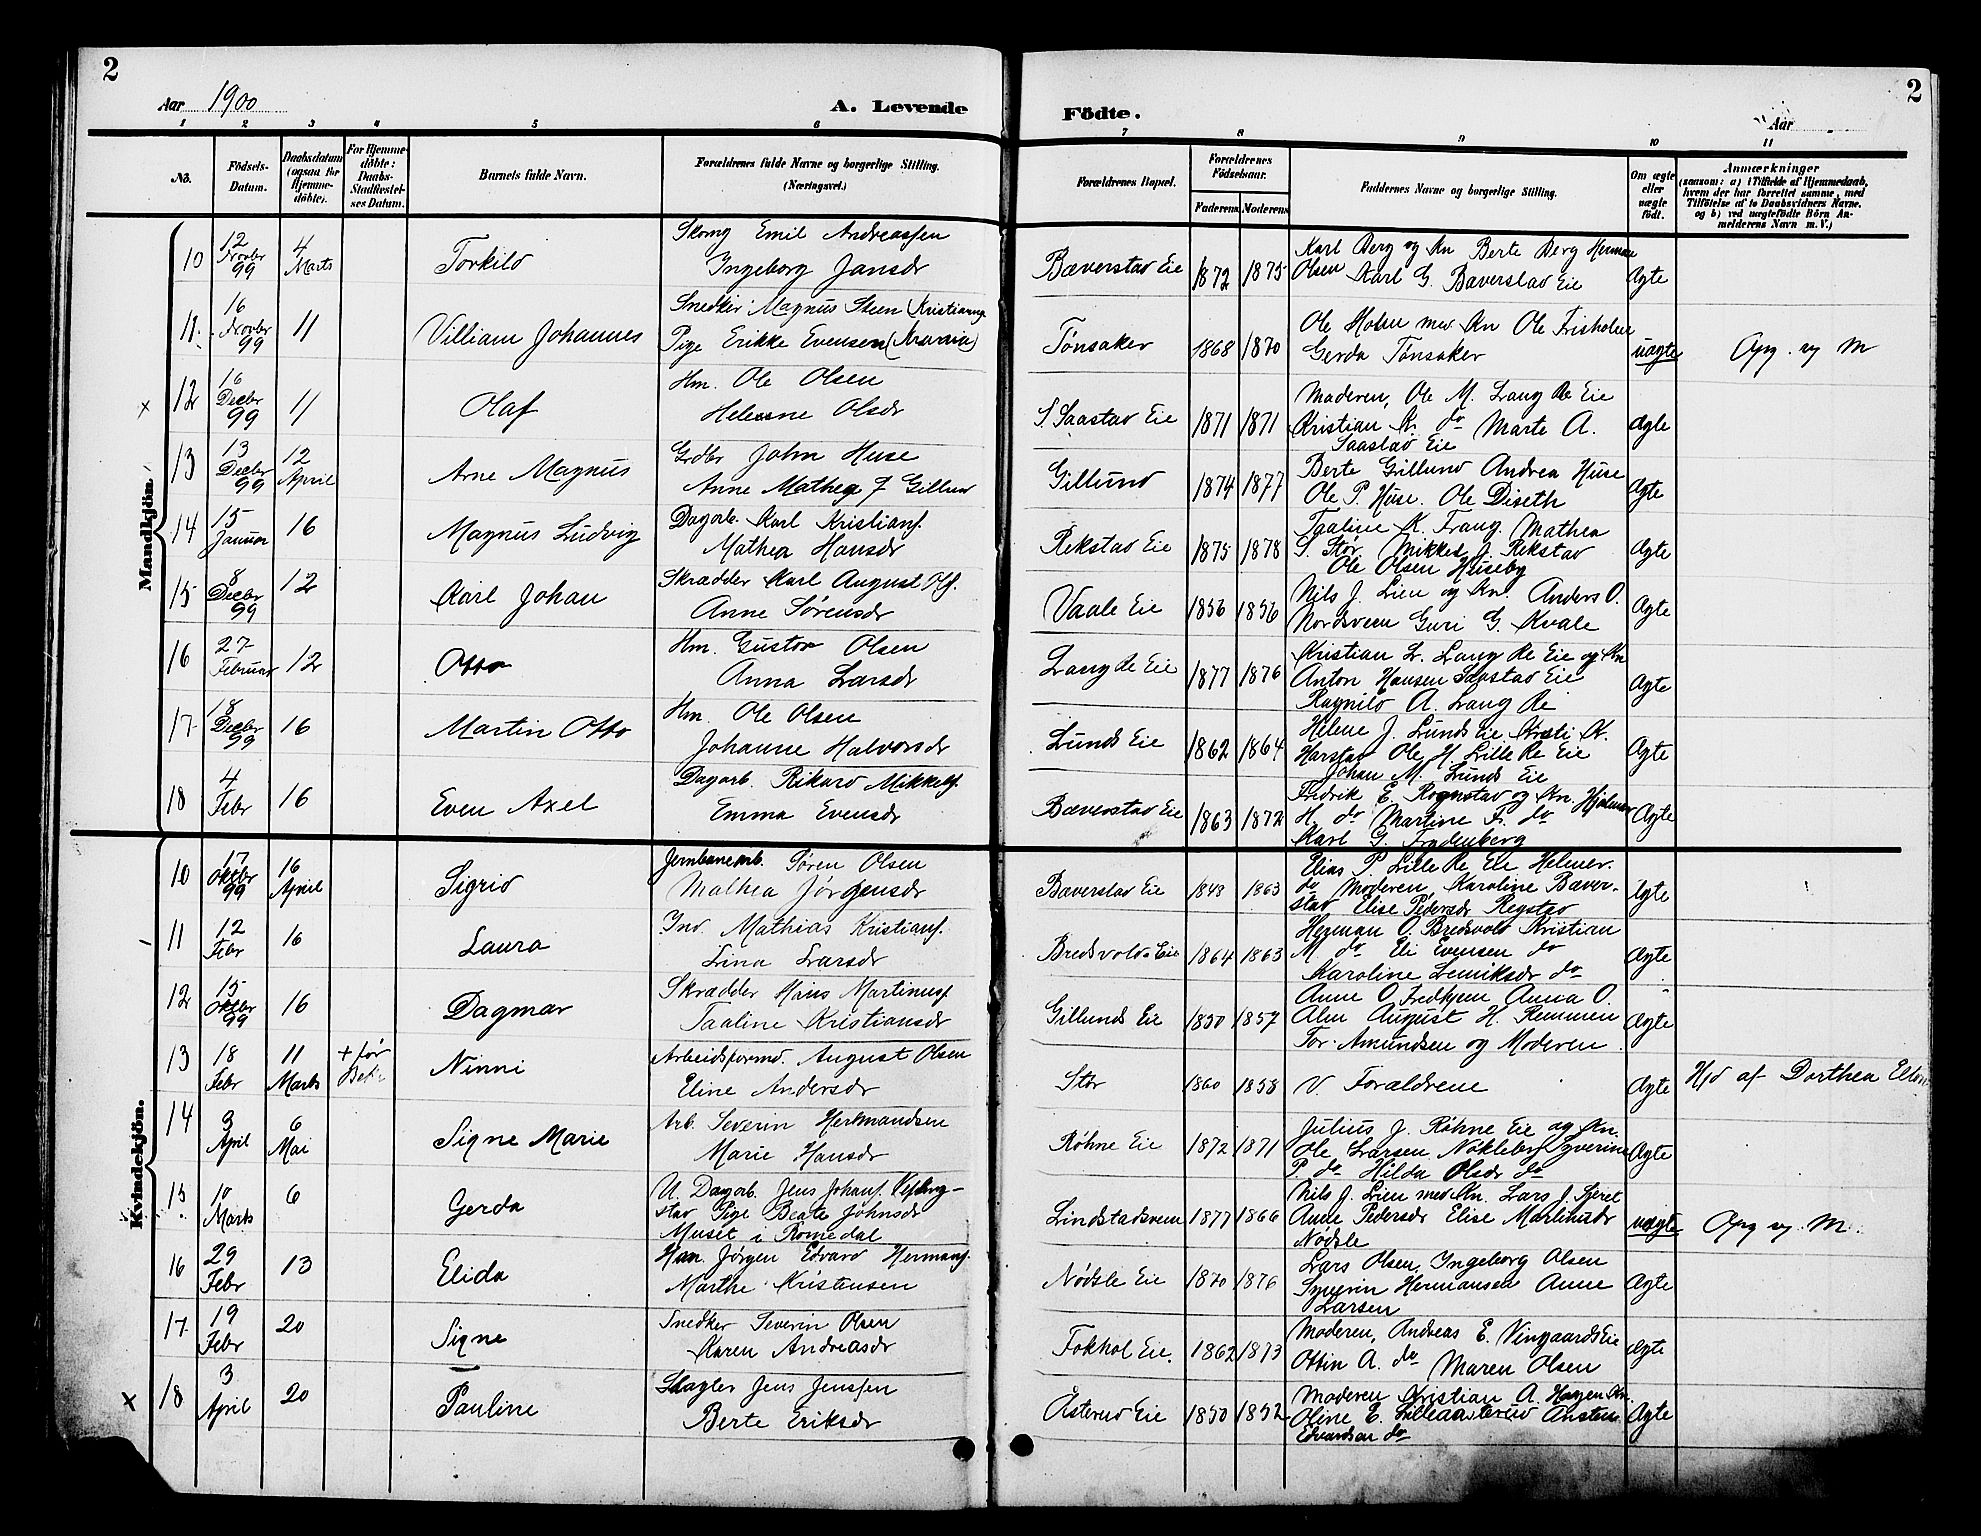 2
2
Aar 1900
A. Levende
Födte.
Aar
1 2 3 4 5 6 7 8 9 10 11
No.
Födsels-Datum.
Daabsdatum (ogsaa for Hjemme-döbte).
For Hjemme-döbte: Daabs-Stadfæstel-ses Datum.
Barnets fulde Navn.
Forældrenes fulde Navne og borgerlige Stilling. (Næringsvei.)
Forældrenes Bopæl.
Forældrenes Födselsaar.
Faderens Moderens
Faddernes Navne og borgerlige Stilling.
Om ægte eller uægte födt.
Anmærkninger
(saasom: a) i Tilfælde af Hjemmedaab, hvem der har forrettet samme, med Tilföielse af to Daabsvidners Navne. og b) ved uægtefödte Börn Anmelderens Navn m. V.)
Mandkjön.
10 12 Novbr 99 4 Marts Torkild Emil Andreassen
Ingeborg Jansdr Bæverstad Eie 1872 1875 Karl Berg og Kn Berte Berg Herman
Olsen Karl G. Bæverstad Eie Ægte
11 16 Novbr 99 11 Villiam Johannes Snedker Magnus Steen
Pige Erikke Evensen Tønsaker 1868 1870 Ole Moen med Kn Ole Frisholm
Gerda Tønsaker uægte Opg. og M
12 16 Decbr 99 11 Olaf Hm. Ole Olsen
Helene Olsdr S. Saastad Eie 1871 1871 Moderen, Ole M. Lang Re Eie
Kristian K. do Marte A.
Saastad Eie Ægte
13 13 Decbr 99 12 April Arne Magnus Grdbr John Huse
Anne Mathea J Gillund Gillund 1874 1877 Berte Gillund Andrea Huse
Ole P. Huse. Ole Diseth Ægte
14 15 Januar 16 Magnus Ludvig Dagarb. Karl Kristians.
Mathea Hansdr Rekstad Eie 1875 1878 Taaline K. Frang. Mathea
S. Stor Mikkel J. Rekstad
Ole Olsen Huseby Ægte
15 8 Decbr 99 12 Karl Johan Skrædder Karl August Ols.
Anne Sørensdr Vaale Eie 1856 1856 Nils J. Lien og Kn. Anders O.
Nordsveen Guri G. Kvale Ægte
16 27 Februar 12 Otto Hm. Gustav Olsen
Anna Larsdr Lang Re Eie 1877 1876 Kristian L. Lang Re Eie og Kn
Anton Hansen Saastad Eie
Ragnild A. Lang Re Ægte
17 18 Decbr 99 16 Martin Otto Hm. Ole Olsen
Johanne Halvorsdr Lunds Eie 1862 1864 Helene J. Lunds Eie Kristi K.
Harstad Ole H. Lille Re Eie
Johan M. Lunds Eie Ægte
18 4 Febr 16 Even Axel Dagarb. Rikard Mikkels.
Emma Evensdr Bæverstad Eie 1863 1872 Fredrik E. Rognstad og Kn Hjalmar
H. do Martine F. do
Karl G. Frydenberg Ægte
Kvindekjön.
10 17 Oktbr 99 16 April Sigrid Jernbanearb. Søren Olsen
Mathea Jørgensdr Bæverstad Eie 1843 1863 Elias P. Lille Re Eie Helmer
do Moderen, Karoline Bæver-
stad Elise Pedersdr Regstad Ægte
11 12 Febr 16 Laura Ind. Mathias Kristians.
Lina Larsdr Bredsvolds Eie 1864 1863 Herman O. Bredsvold Kristian
M do Eli Evensen do
Karoline Lemiksdr do Ægte
12 15 Oktbr 99 16 Dagmar Skrædder Hans Martinus.
Taaline Kristiansdr Gillunds Eie 1850 1857 Anne O. Fredhjem Anna O.
Alm August H. Remmen
Tor Amundsen og Moderen Ægte
13 18 Febr 11 Marts + før Ninni Arbeidsformd. August Olsen
Eline Andersdr Stor 1860 1858 V. Forældrene Ægte Hjd af Dorthea
14 3 April 6 Mai Signe Marie Arb. Severin Herkmandsen
Marie Hansdr Røhne Eie 1872 1871 Julius J. Røhne Eie og Kn.
Ole Larsen Nøkleby Syverine
P. do Hilda Olsdr do Ægte
15 10 Marts 6 Gerda U. Dagarb. Jens Johans.
stad Pige Beate Johnsdr
Muset i Romedal Lindstadsveen 1877 1866 Nils J. Lien med Kn. Lars J. Sjeret
Anne Pedersdr Elise Martinusdr
Nødsle uægte Opg og M.
16 29 Febr 13 Elida Han. Jørgen Edvard Hermans.
Marthe Kristensen Nødsle Eie 1870 1876 Lars Olsen, Ingeborg Olsen
Syverin Hermansen Anne
Larsen Ægte
17 19 Febr 20 Signe Snedker Severin Olsen
Karen Andreasdr Fokhol Eie. 1862 1873 Moderen, Andreas E. Vingaards Eie
Ottin A. do Maren Olsen Ægte
18 3 April 20 Pauline Slagter Jens Jenssen
Berte Eriksdr Åsterud Eie 1850 1852 Moderen Kristian A. Hagen Kn.
Oline E. Lilleaasterud
Edvardsen do Ægte